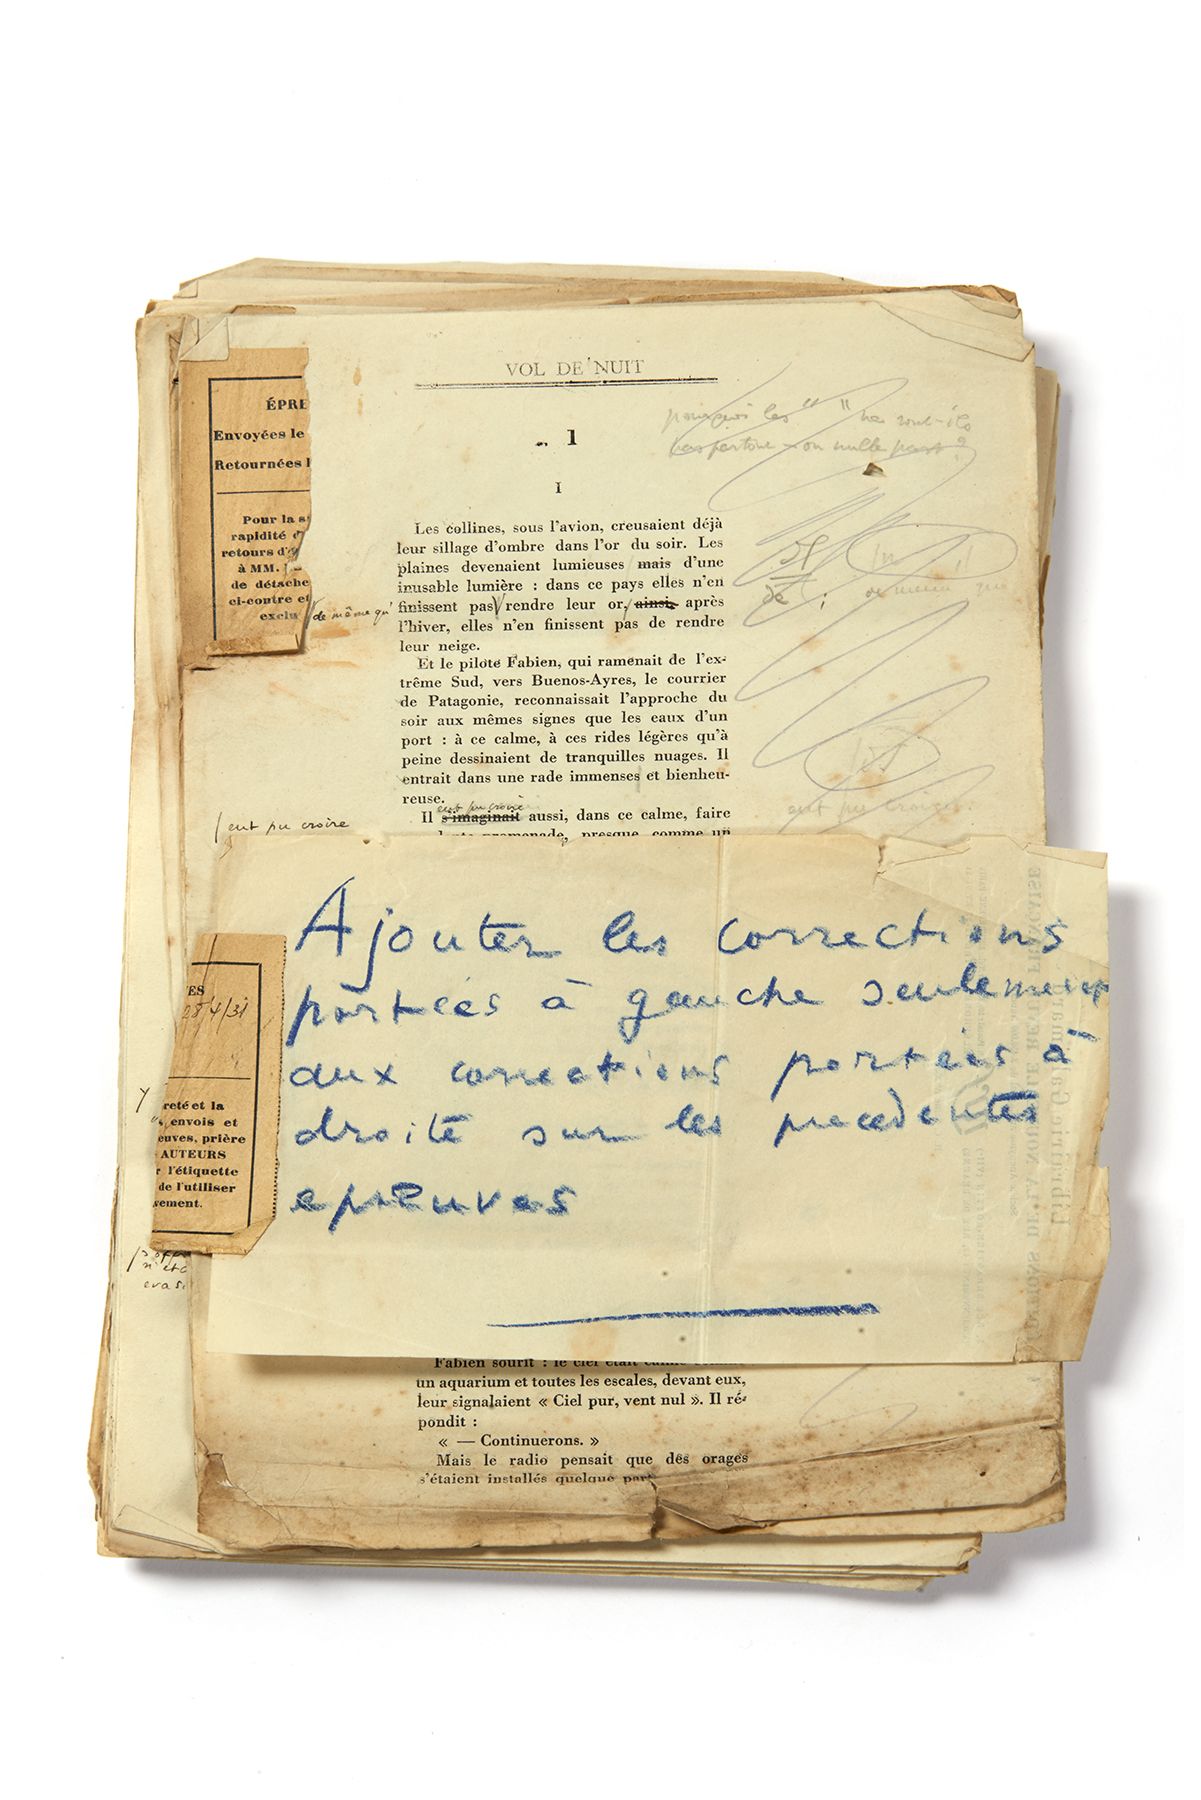 VOL DE NUIT
1
I
pourquoi les " " ne sont-ils
pas partout ou nulle part?
ÉPRE
Envoyées le
Retournées
Pour la
rapidité d
retours d'
à MM.
de détache
ci-contre et
exclu
Les collines, sous l'avion, creusaient déjà
leur sillage d'ombre dans l'or du soir. Les
plaines devenaient lumieuses mais d'une
inusable lumière : dans ce pays elles n'en
finissent pas rendre leur or, ainsi, après
de même qu'
l'hiver, elles n'en finissent pas de rendre
leur neige.
Et le pilote Fabien, qui ramenait de l'ex-
trême Sud, vers Buenos-Ayres, le courrier
de Patagonie, reconnaissait l'approche du
soir aux mêmes signes que les eaux d'un
port : à ce calme, à ces rides légères qu'à
peine dessinaient de tranquilles nuages. Il
entrait dans une rade immenses et bienheu-
reuse.
eut pu croire
Il s'imaginait aussi, dans ce calme, faire
promenade, presque comme un
eut pu croire
eut pu croire
Ajouter les corrections
portées à gauche seulement
aux corrections portées à
droite sur les precedentes
epreuves
VES
28/4/31
reté et la
envois et
euves, prière
AUTEURS
r l'étiquette
de l'utiliser
vement.
Fabien sourit : le ciel était calme
un aquarium et toutes les escales, devant eux,
leur signalaient « Ciel pur, vent nul ». Il ré-
pondit :
« — Continuerons. »
Mais le radio pensait que des orages
s'étaient installés quelque part